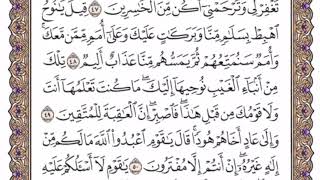 تَغْفِرْ لِي وَتَرْحَمْنِي أَكُن مِّنَ الْخَاسِرِينَ ٤٧ قِيلَ يَا نُوحُ
اهْبِطْ بِسَلَامٍ مِّنَّا وَبَرَكَاتٍ عَلَيْكَ وَعَلَىٰ أُمَمٍ مِّمَّن مَّعَكَ
وَأُمَمٌ سَنُمَتِّعُهُمْ ثُمَّ يَمَسُّهُم مِّنَّا عَذَابٌ أَلِيمٌ ٤٨ تِلْكَ
مِنْ أَنبَاءِ الْغَيْبِ نُوحِيهَا إِلَيْكَ مَا كُنتَ تَعْلَمُهَا أَنتَ
وَلَا قَوْمُكَ مِن قَبْلِ هَٰذَا فَاصْبِرْ إِنَّ الْعَاقِبَةَ لِلْمُتَّقِينَ ٤٩
وَإِلَىٰ عَادٍ أَخَاهُمْ هُودًا قَالَ يَا قَوْمِ اعْبُدُوا اللَّهَ مَا لَكُم مِّنْ
إِلَٰهٍ غَيْرُهُ إِنْ أَنتُمْ إِلَّا مُفْتَرُونَ ٥٠ يَا قَوْمِ لَا أَسْأَلُكُمْ عَلَيْهِ